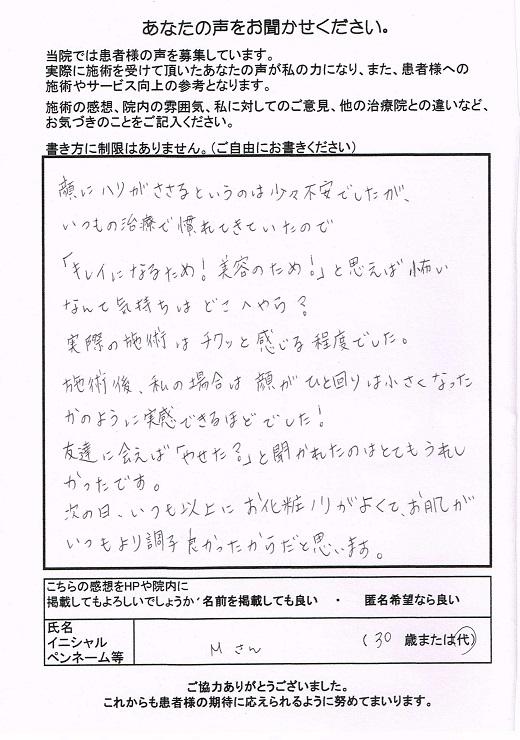 あなたの声をお聞かせください。
当院では患者様の声を募集しています。
実際に施術を受けて頂いたあなたの声が私の力になり、また、患者様への
施術やサービス向上の参考となります。
施術の感想、院内の雰囲気、私に対してのご意見、他の治療院との違いなど、
お気づきのことをご記入ください。
書き方に制限はありません。(ご自由にお書きください)
顔にハリがささるというのは少々不安でしたが、
いつもの治療で慣れてきていたので
「キレイになるため!美容のため!」と思えば怖い
なんて気持ちはどこへやら?
実際の施術はチクッと感じる程度でした。
施術後、私の場合は顔がひと回りは小さくなった
かのように実感できるほどでした!
友達に会えば「やせた?」と聞かれたのはとてもうれし
かったです。
次の日、いつも以上にお化粧ノリがよくて、お肌が
いつもより調子良かったからだと思います。
こちらの感想をHPや院内に
掲載してもよろしいでしょうか 名前を掲載しても良い ・ 匿名希望なら良い
氏名
イニシャル
ペンネーム等
Mさん (30 歳または代)
ご協力ありがとうございました。
これからも患者様の期待に応えられるように努めてまいります。